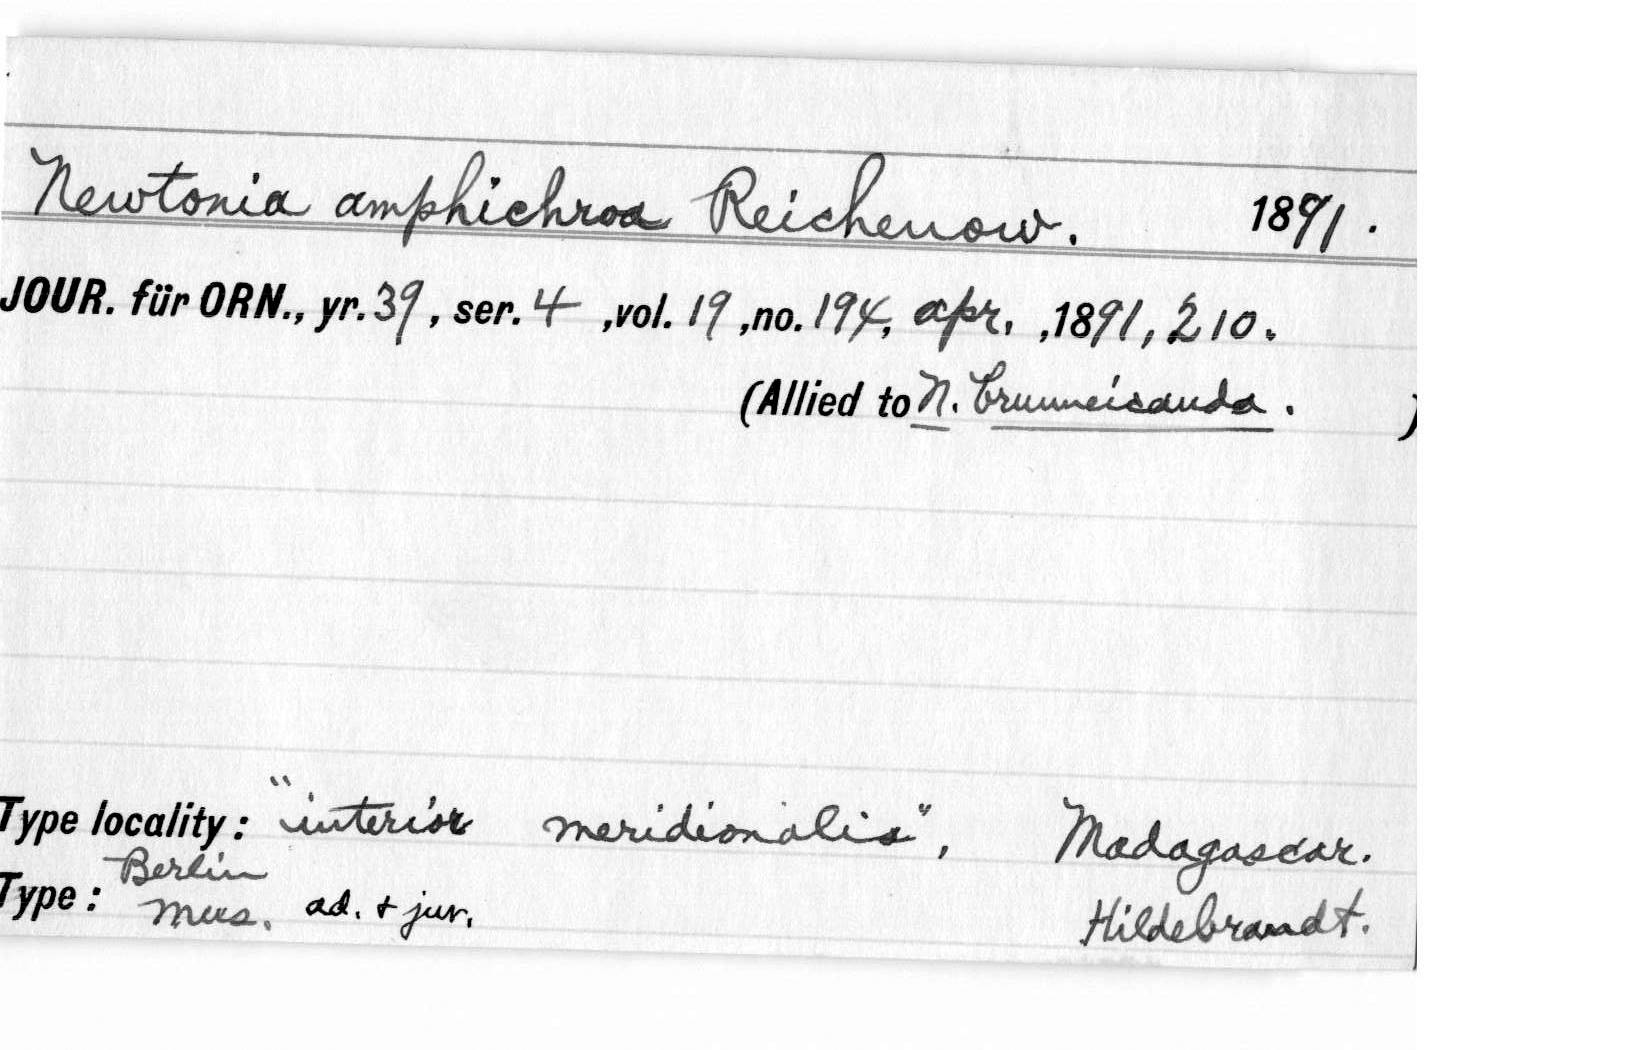 Newtonia amphichroa Reichenow. 1891.
JOUR. für ORN., yr. 39, ser. 4, vol. 19, no. 194, apr., 1891, 210.
(Allied to N. brunneicauda. )
Type locality: "interior meridionalis", Madagascar.
Type: Berlin Mus. ad. + juv. Hildebrandt.